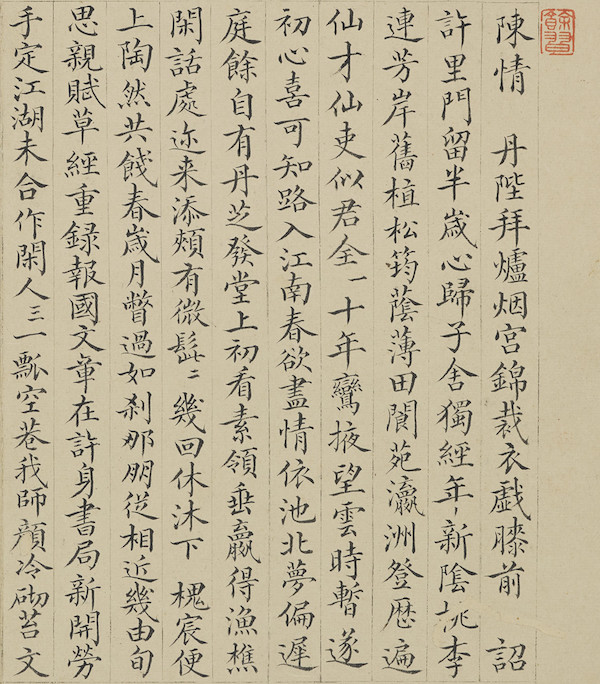 陳情　丹陛拜爐烟宮錦裁衣戲膝前　詔
許里門留半歲心歸子舍獨經年新陰桃李
連芳岸舊植松筠蔭薄田閬苑瀛洲登歷遍
仙才仙吏似君全一十年鸞掖望雲時暫遂
初心喜可知路入江南春欲盡情依池北夢偏遲
庭餘自有丹芝發堂上初看素領垂贏得漁樵
閑話處迩来添頰有微髭二幾回休沐下　槐宸便
上陶然共餞春歲月瞥過如刹那朋從相近幾由旬
思親賦草經重録報國文章在許身書局新開勞
手定江湖未合作閑人三一瓢空巷我師顔冷砌苔文